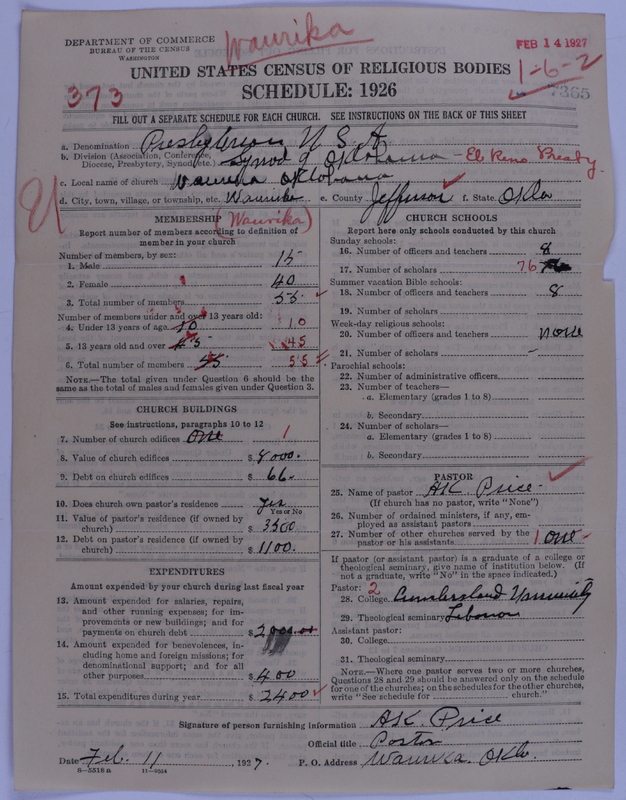 Waurika
DEPARTMENT OF COMMERCE
BUREAU OF THE CENSUS
WASHINGTON
FEB 14 1927
UNITED STATES CENSUS OF RELIGIOUS BODIES
1-6-2
373
SCHEDULE: 1926
7365
FILL OUT A SEPARATE SCHEDULE FOR EACH CHURCH. SEE INSTRUCTIONS ON THE BACK OF THIS SHEET
a. Denomination Presbyterian U S A
b. Division (Association, Conference, Diocese, Presbytery, Synod, etc.) Synod of Oklahoma - El Reno Presby.
c. Local name of church Waurika Oklahoma
d. City, town, village, or township, etc. Waurika e. County Jefferson f. State Okla
U
MEMBERSHIP (Waurika)
Report number of members according to definition of
member in your church
Number of members, by sex:
1. Male 15
2. Female 40
3. Total number of members 55
Number of members under and over 13 years old:
4. Under 13 years of age 10 10
5. 13 years old and over 45 45
6. Total number of members 55 55
NOTE.—The total given under Question 6 should be
same as the total of males and females given under Question 3.
CHURCH BUILDINGS
See instructions, paragraphs 10 to 12
7. Number of church edifices One 1
8. Value of church edifices $ 8000.
9. Debt on church edifices $ 66
10. Does church own pastor's residence yes
Yes or No
11. Value of pastor's residence (if owned by
church) $ 3500
12. Debt on pastor's residence (if owned by
church) $ 1100.
EXPENDITURES
Amount expended by your church during last fiscal year
13. Amount expended for salaries, repairs,
and other running expenses; for im-
provements or new buildings; and for
payments on church debt $ 2000.00
14. Amount expended for benevolences, in-
cluding home and foreign missions; for
denominational support; and for all
other purposes $ 400
15. Total expenditures during year $ 2400
CHURCH SCHOOLS
Report here only schools conducted by this church
Sunday schools:
16. Number of officers and teachers 8
17. Number of scholars 76
Summer vacation Bible schools:
18. Number of officers and teachers 8
19. Number of scholars
Week-day religious schools:
20. Number of officers and teachers none
21. Number of scholars -
Parochial schools:
22. Number of administrative officers
23. Number of teachers—
a. Elementary (grades 1 to 8)
b. Secondary
24. Number of scholars—
a. Elementary (grades 1 to 8)
b. Secondary
PASTOR
25. Name of pastor A K. Price
(If church has no pastor, write "None")
26. Number of ordained ministers, if any, em-
ployed as assistant pastors
27. Number of other churches served by the
pastor or his assistants 1 one
If pastor (or assistant pastor) is a graduate of a college or
theological seminary, give name of institution below. (If
not a graduate, write "No" in the space indicated.)
Pastor: 2
28. College Cumberland University
29. Theological seminary Lebanon
Assistant pastor:
30. College
31. Theological seminary
NOTE.—Where one pastor serves two or more churches,
Questions 28 and 29 should be answered only on the schedule
for one of the churches; on the schedules for the other churches,
write "See schedule for church."
Signature of person furnishing information A K. Price
Official title Pastor
Date Feb. 11 1927. P. O. Address Waurika. Okla.
8—5318 a 11—9034